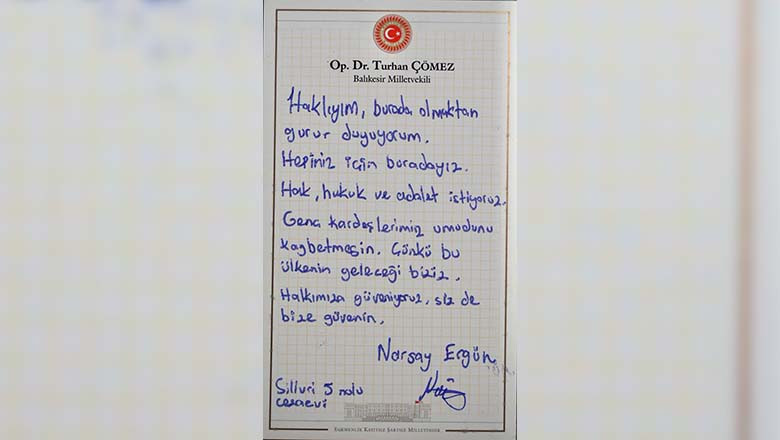 Op. Dr. Turhan ÇÖMEZ
Balıkesir Milletvekili
Haklıyım, burada olmaktan
gurur duyuyorum.
Hepiniz için buradayız.
Hak, hukuk ve adalet istiyoruz.
Genç kardeşlerimiz umudunu
kaybetmesin. Çünkü bu
ülkenin geleceği biziz.
Halkımıza güveniyoruz, siz de
bize güvenin.
Narsay Ergün
Silivri 5 nolu
cezaevi
EGEMENLİK KAYITSIZ ŞARTSIZ MİLLETİNDİR